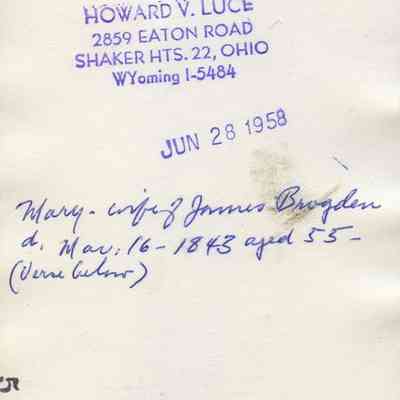 HOWARD V. LUCE
2859 EATON ROAD
SHAKER HTS. 22, OHIO
WYoming 1-5484
JUN 28 1958
Mary - wife of James Brogden
d. Mar. 16 - 1843 aged 55 -
(Verse below)